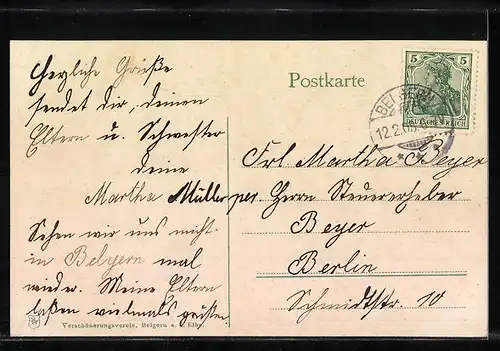 Herzliche Grüße
sendet dir, deinen
Eltern u. Schwester
deine
Martha Müller
Sehen wir uns nicht
in Belgern mal
wieder. Meine Eltern
laßen vielmals grüßen
Verschönerungsverein, Belgern a. Elbe.
Postkarte
5 5
DEUTSCHES REICH
BELGERN
12.2.
Frl. Martha Beyer
per. Herrn Steuererheber
Beyer
Berlin
Schmidtstr. 10